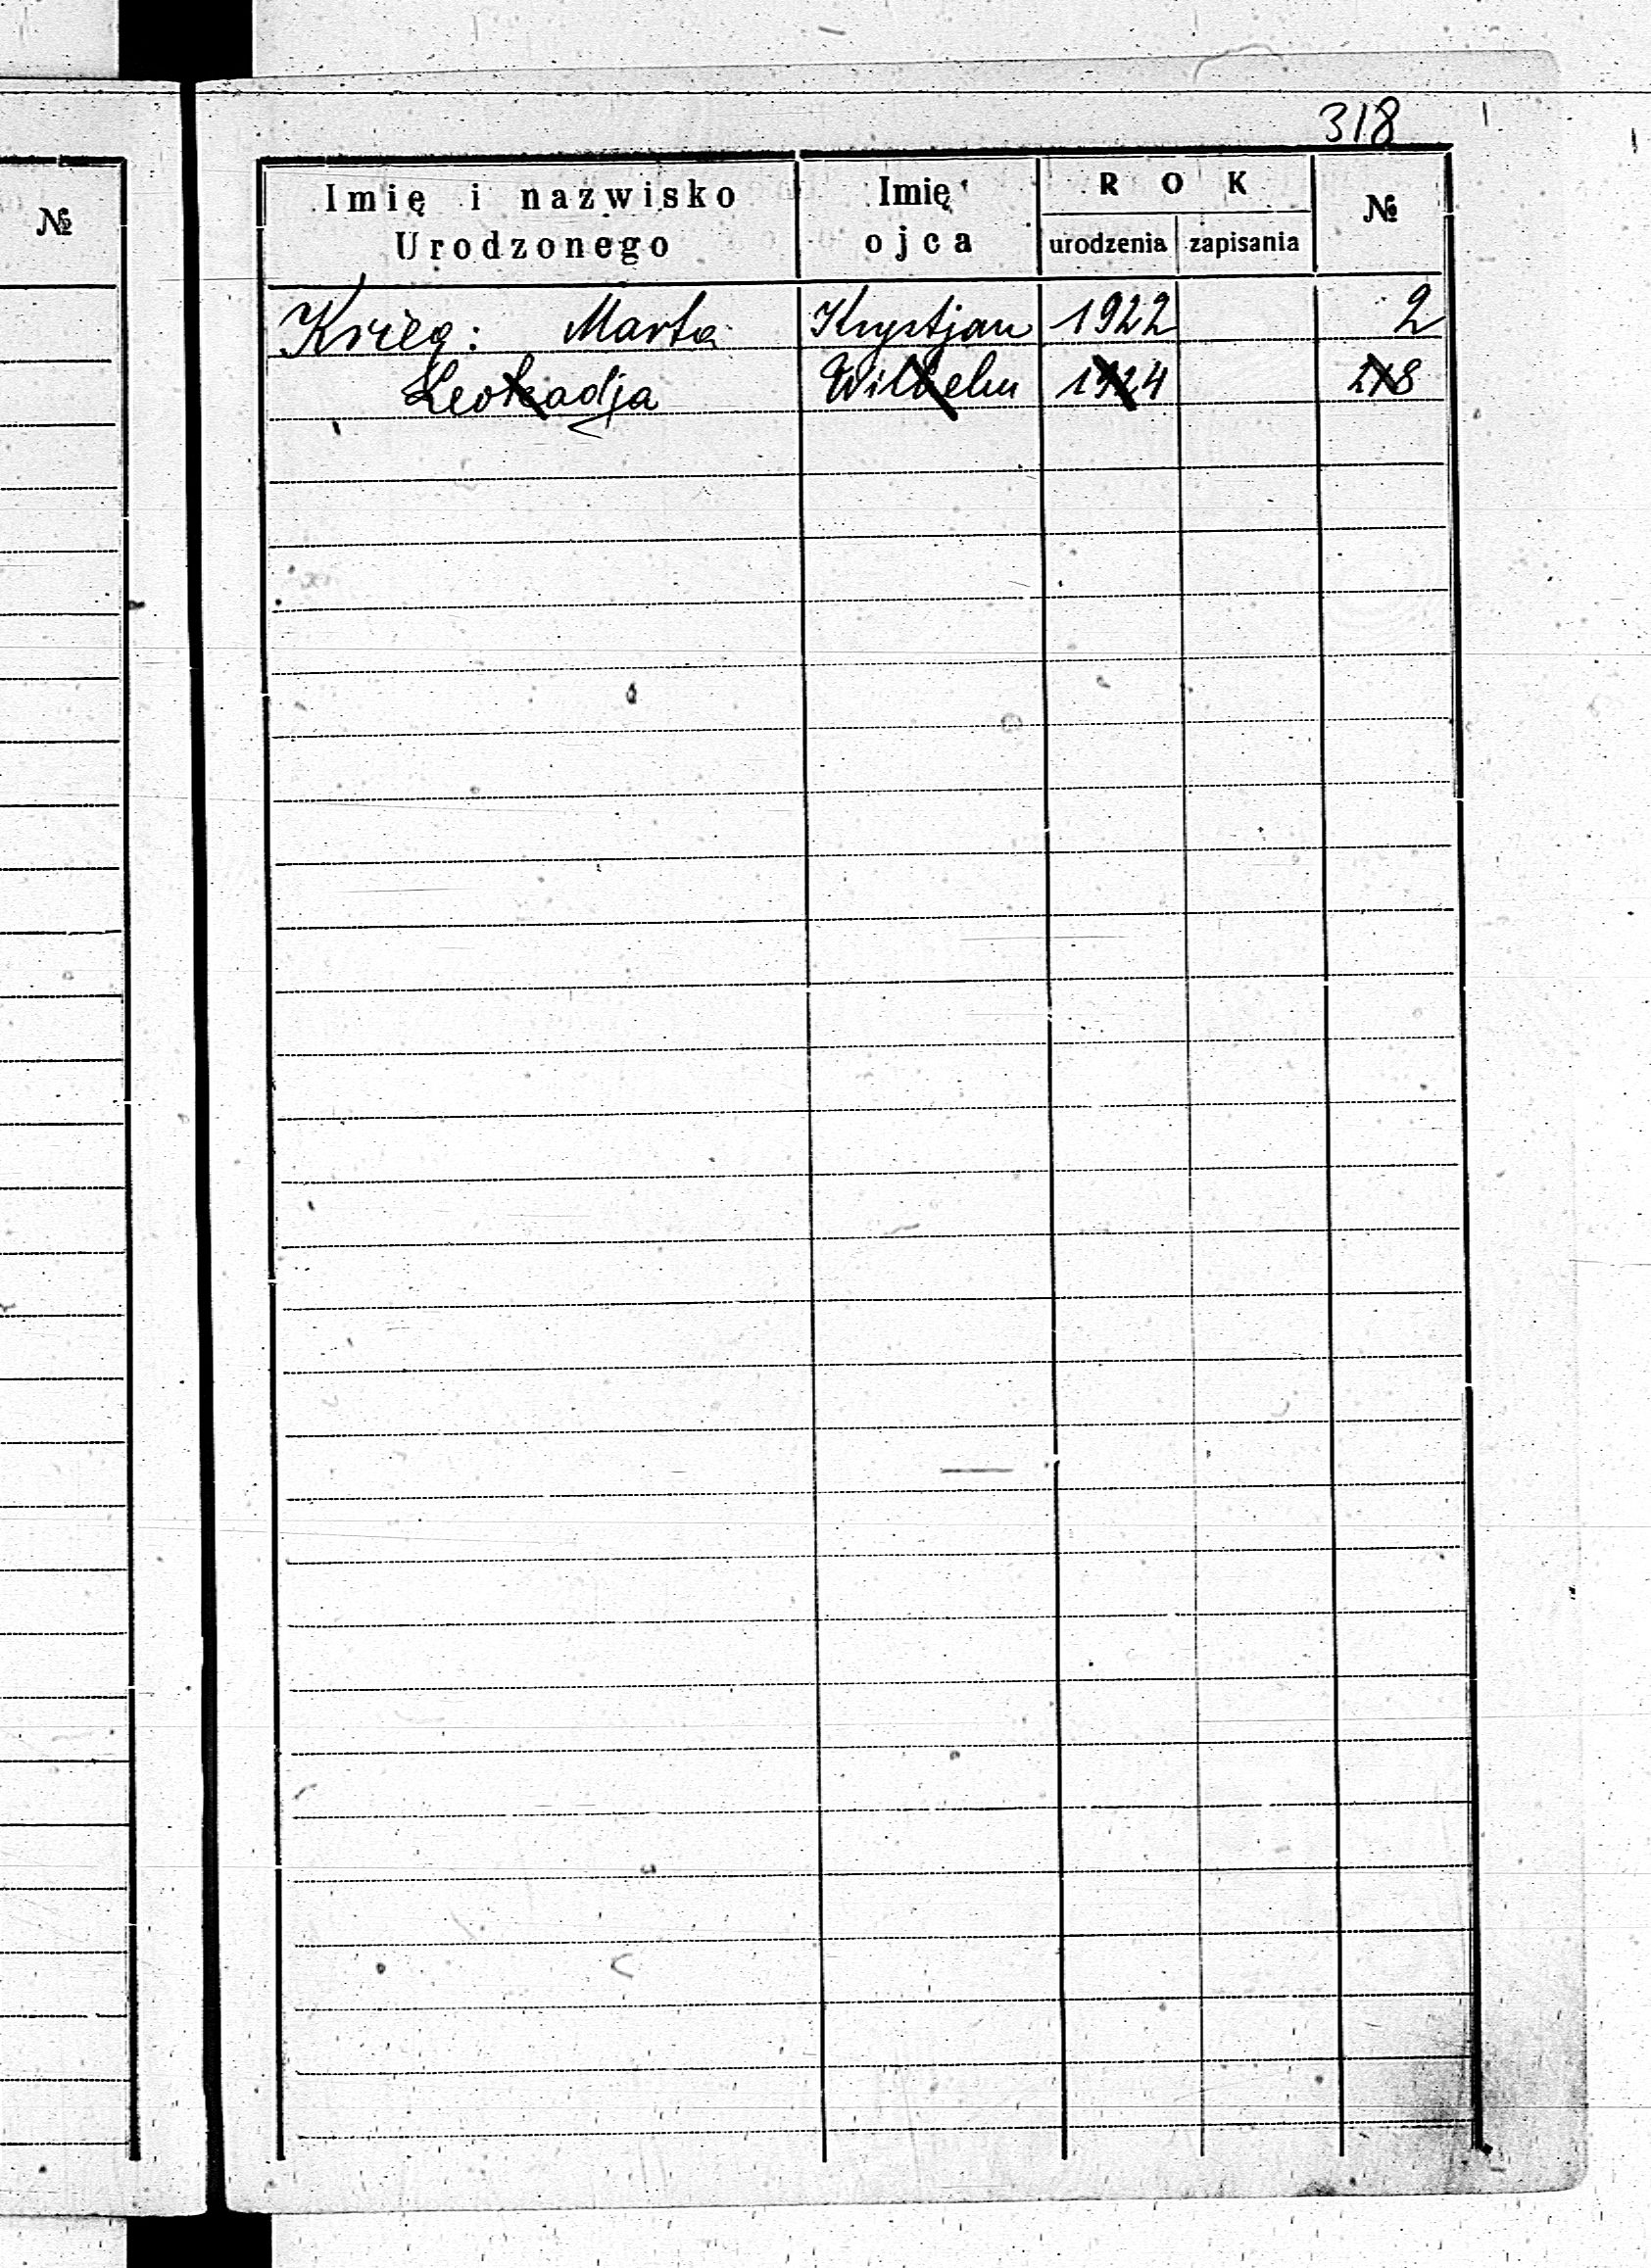 318
№
Imię i nazwisko
Urodzonego
Imię
ojca
ROK
urodzenia zapisania
№
Krieg: Marta Krystjan 1922 2
Leokadja Wilhelm 1924 218